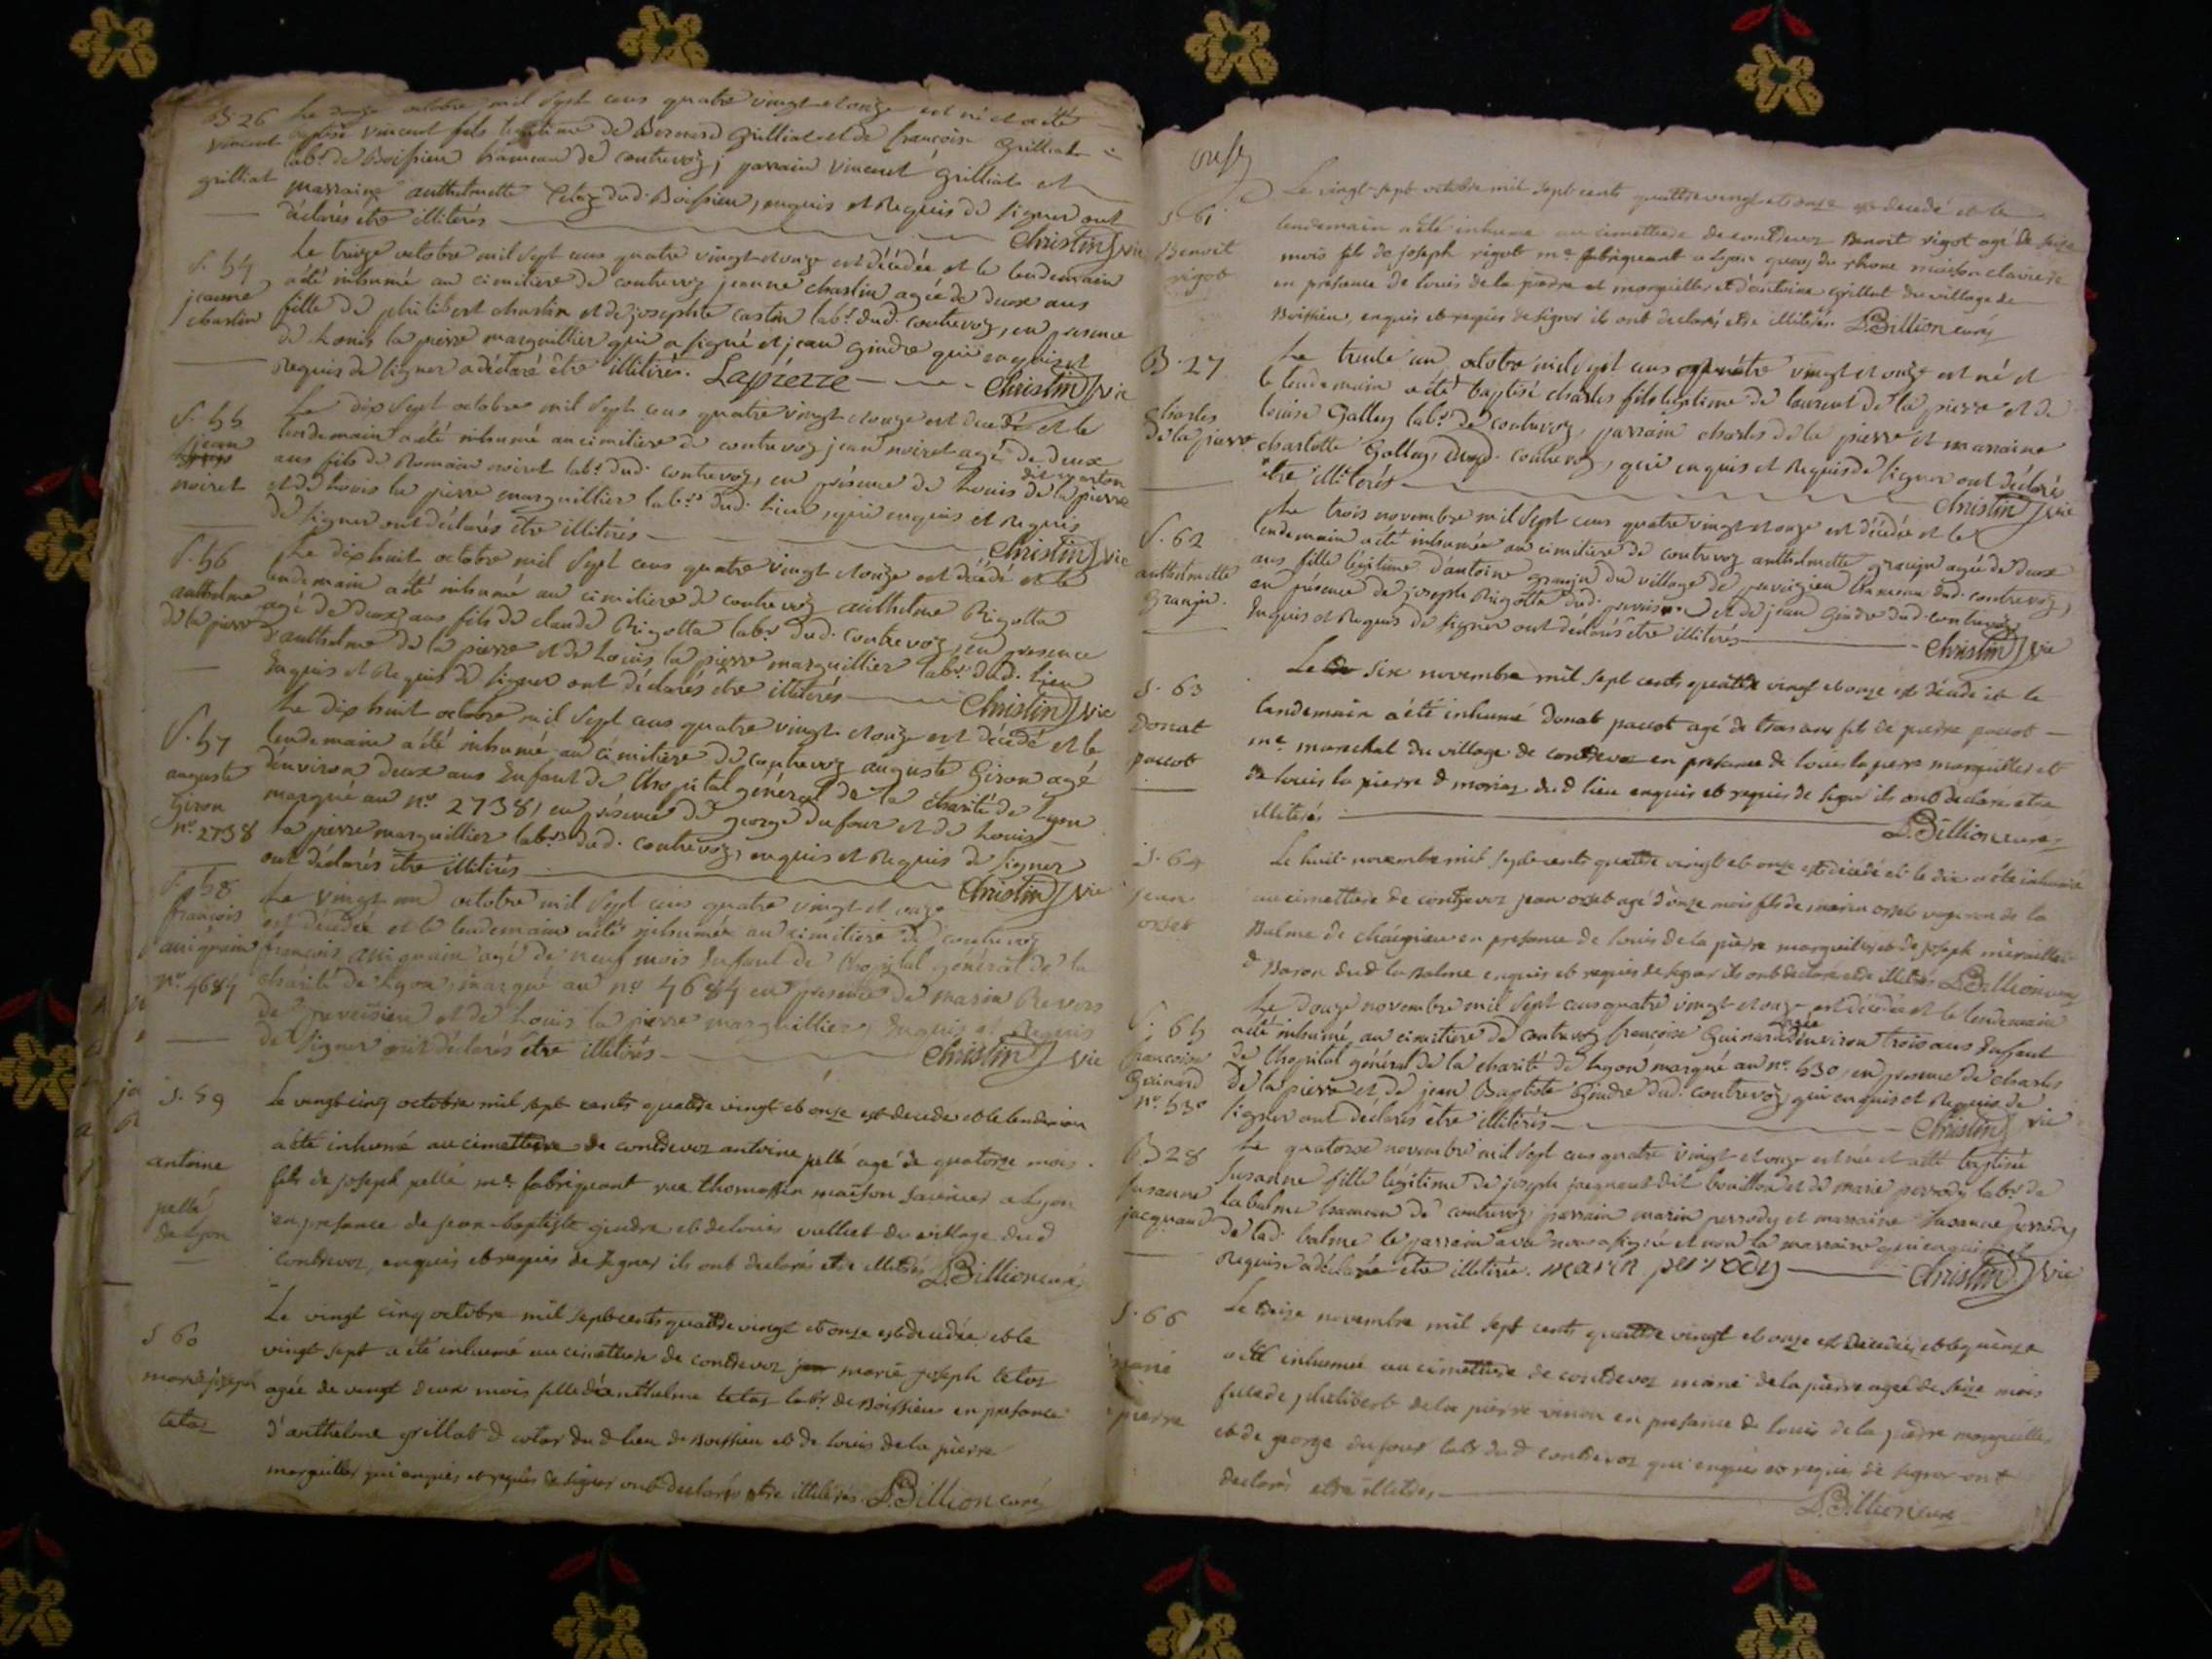 B. 26
vincent
grilliat
Le onze octobre mil sept cens quatre vingt et onze est né et a été
baptisé vincent fils legitime de Bernard grilliat et de françoise grilliat
lab.r de Boissieu hameau de contrevoz; parrain vincent grilliat et
marraine anthelmette tetaz dud. Boissieu, enquis et Requis de signer ont
déclarés être illiterés Christin vic
S. 54
jeanne
charlin
Le treize octobre mil sept cens quatre vingt et onze est décédée et le lendemain
a été inhumé au cimetiere de contrevoz jeanne charlin agée de deux ans
fille de philibert charlin et de josephte castin lab.r dud. contrevoz, en presence
de Louis la pierre marguillier qui a signé et jean gindre qui enquis et
Requis de signer a déclaré être illiteré. Lapierre Christin Vic
S. 55
jean
noiret
Le dix sept octobre mil sept cens quatre vingt et onze est decedé et le
lendemain a été inhumé au cimetiere de contrevoz jean noiret agé de deux
ans fils de Romain noiret lab.r dud. contrevoz, en présence de Louis de la pierre
et de Louis la pierre marguillier lab.rs dud. lieu, qui enquis et Requis
de signer ont déclarés être illiterés Christin Vic
S. 56
anthelme
de la pierre
Le dix huit octobre mil sept cens quatre vingt et onze est décédé et le
lendemain a été inhumé au cimetiere de contrevoz anthelme Rigotta
agé de deux ans fils de claude Rigotta lab.r dud. contrevoz, en presence
d'anthelme de la pierre et de Louis la pierre marguillier lab.rs dud. lieu
Enquis et Requis de signer ont déclarés être illiterés Christin Vic
S. 57
auguste
Giron
n.o 2738
Le dix huit octobre mil sept cens quatre vingt et onze est décédé et le
lendemain a été inhumé au cimetiere de contrevoz auguste Giron agé
d'environ deux ans Enfant de l'hopital général de la charité de Lyon
marqué au n.o 2738, en présence de george dufour et de Louis
la pierre marguillier lab.rs dud. contrevoz, enquis et Requis de signer
ont déclarés être illiterés Christin Vic
S. 58
françois
n.o 4684
Le vingt un octobre mil sept cens quatre vingt et onze
est décédée et le lendemain a été inhumée au cimetiere de contrevoz
françois agé de neuf mois Enfant de l'hopital général de la
charité de Lyon, marqué au n.o 4684 en presence de marin Revers
de preveisieu et de Louis la pierre marguillier, Enquis et Requis
de signer ont déclarés être illiterés Christin Vic
S. 59
antoine
pellé
de lyon
Le vingt cinq octobre mil sept cents quattre vingt et onze est decede et le lendemain
a été inhumé au cimettiere de contrevoz antoine pellé agé de quatorze mois
fils de joseph pellé m.e fabriquant rue thomassin maison saunier a Lyon
en presance de jean baptiste gindre et de louis vulliet du village dud
contrevoz, enquis et requis de signer ils ont declarés etre illiterés D. Billion curé
S 60
marie joseph
tetaz
Le vingt cinq octobre mil sept cents quattre vingt et onze est decedée et le
vingt sept a été inhumé au cimettiere de contrevoz marie joseph tetaz
agée de vingt deux mois fille d'anthelme tetaz lab.r de Boissieu en presance
d'anthelme grillat d cotar du d lieu de Boissieu et de louis de la pierre
marguiller qui enquis et requis de signer ont declarés etre illiterés D. Billion curé
onze
S 61
Benoit
rigot
Le vingt-sept octobre mil sept cents quattre vingt et onze est decedé et le
lendemain a été inhumé au cimettiere de contrevoz Benoit rigot agé de seize
mois fils de joseph rigot m.e fabriquant a Lyon quay du rhone maison
en presance de louis de la pierre et marguiller et d'antoine grillat du village de
Boissieu, enquis et requis de signer ils ont declarés etre illiterés D. Billion curé
B. 27
Charles
de la pierre
Le trente un octobre mil sept cens quatre vingt et onze est né et
le lendemain a été baptisé charles fils legitime de laurent de la pierre et de
louise Gallay lab.r de contrevoz, parrain charles de la pierre et marraine
charlotte Gallay, dud. contrevoz, qui enquis et Requis de signer ont déclaré
être illiterés Christin Vic
S. 62
anthelmette
Granju.
Le trois novembre mil sept cens quatre vingt et onze est décédée et le
lendemain a été inhumée au cimetiere de contrevoz anthelmette granju agée de deux
ans fille légitime d'antoine granju du village de preveizieu hameau dud. contrevoz,
en présence de joseph Rigotta dud. et de jean Gindre dud. contrevoz
Enquis et Requis de signer ont déclarés être illiterés Christin Vic
S. 63
Donat
paccot
Le six novembre mil sept cents quattre vingt et onze est décédé et le
lendemain a été inhumé Donat paccot agé de trois ans fils de pierre paccot
m.e marechal du village de contrevoz en presance de louis la pierre marguiller et
de louis la pierre d morias du d lieu enquis et requis de signer ils ont declarés etre
illiterés D. Billion curé
S. 64
jean
orset
Le huit novembre mil sept cents quattre vingt et onze est decedé et le dix a été inhumé
au cimettiere de contrevoz jean orset agé d'onze mois fils de marin orset vigneron de la
Balme de en presance de louis de la pierre marguiller et de joseph
d Baron du d la Balme enquis et requis de signer ils ont declarés etre illiterés D. Billion curé
S. 65
françoise
Guinard
n.o 530
Le douze novembre mil sept cens quatre vingt et onze est décédée et le lendemain
a été inhumé au cimetiere de contrevoz françoise Guinard agée d'environ trois ans Enfant
de l'hopital général de la charité de Lyon marqué au n.o 530, en presence de charles
de la pierre et de jean Baptiste Gindre dud. contrevoz, qui enquis et Requis de
signer ont déclarés être illiterés Christin Vic
B 28
Susanne
jacquand
Le quatorze novembre mil sept cens quatre vingt et onze est née et a été baptisée
Susanne fille légitime de joseph jacquand dit bouillou et de marie perrody lab.r de
la balme hameau de contrevoz, parrain marin perrody et marraine Susanne perrody
de lad. balme le parrain avec nous a signé et non la marraine qui enquise et
Requise a déclarée être illiterée. marin perrody Christin Vic
S. 66
marie
pierre
Le treize novembre mil sept cents quattre vingt et onze est decedée et le quinze
a été inhumée au cimettiere de contrevoz marie de la pierre agée de seize mois
fille de philibert de la pierre en presance de louis de la pierre marguiller
et de george dufour lab.r du d contrevoz qui enquis et requis de signer ont
declarés etre illiterés D. Billion curé